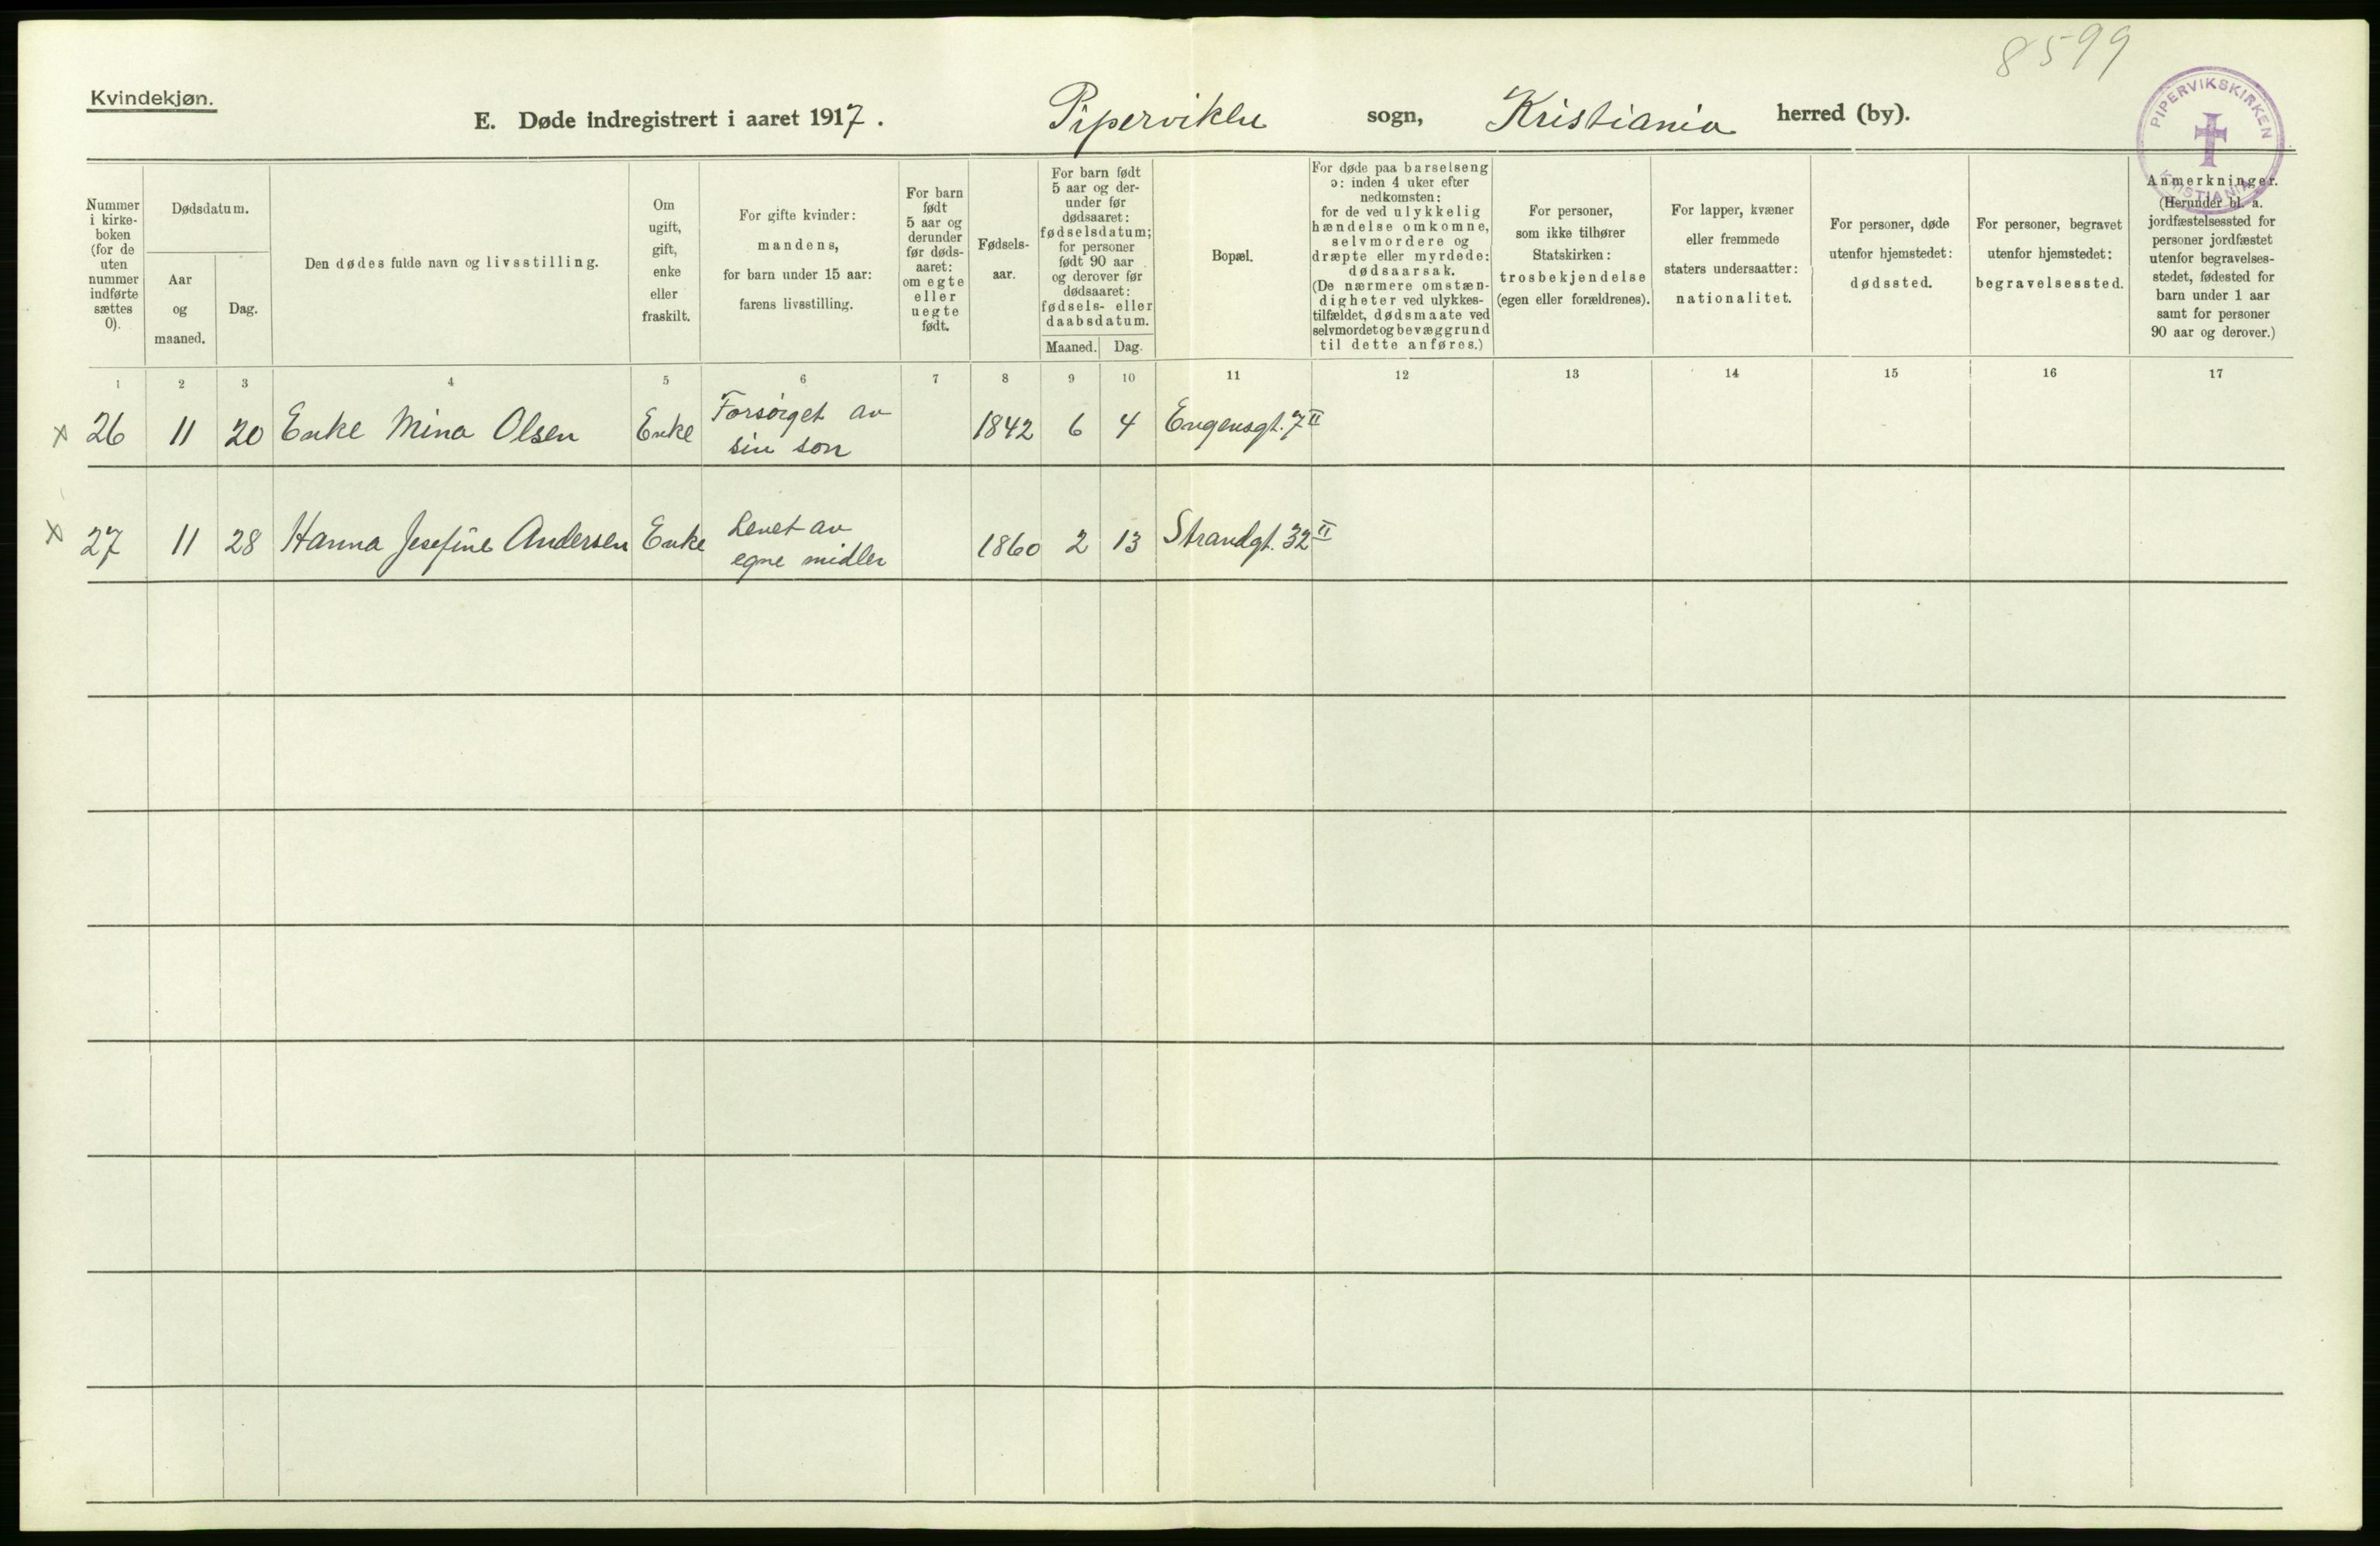 8599
Kvindekjøn.
E. Døde indregistrert i aaret 1917. Piperviken sogn, Kristiania herred (by).
PIPERVIKSKIRKEN
KRISTIANIA
Nummer
i kirke-
boken
(for de
uten
nummer
indførte
sættes
0).
Dødsdatum.
Aar
og
maaned.
Dag.
Den dødes fulde navn og livsstilling.
Om
ugift,
gift,
enke
eller
fraskilt.
For gifte kvinder:
mandens,
for barn under 15 aar:
farens livsstilling.
For barn
født
5 aar og
derunder
før døds-
aaret:
om egte
eller
uegte
født.
Fødsels-
aar.
For barn født
5 aar og der-
under før
dødsaaret:
fødselsdatum;
for personer
født 90 aar
og derover før
dødsaaret:
fødsels- eller
daabsdatum.
Maaned. Dag.
Bopæl.
For døde paa barselseng
ɔ: inden 4 uker efter
nedkomsten:
for de ved ulykkelig
hændelse omkomne,
selvmordere og
dræpte eller myrdede:
dødsaarsak.
(De nærmere omstæn-
digheter ved ulykkes-
tilfældet, dødsmaate ved
selvmordet og bevæggrund
til dette anføres.)
For personer,
som ikke tilhører
Statskirken:
trosbekjendelse
(egen eller forældrenes).
For lapper, kvæner
eller fremmede
staters undersaatter:
nationalitet.
For personer, døde
utenfor hjemstedet:
dødssted.
For personer, begravet
utenfor hjemstedet:
begravelsessted.
Anmerkninger.
(Herunder bl. a.
jordfæstelsessted for
personer jordfæstet
utenfor begravelses-
stedet, fødested for
barn under 1 aar
samt for personer
90 aar og derover.)
1 2 3 4 5 6 7 8 9 10 11 12 13 14 15 16 17
x 26 11 20 Enke Mina Olsen Enke Forsørget av 1842 6 4 Engensgt. 7 II
sin søn
x 27 11 28 Hanna Josefine Andersen Enke Levet av 1860 2 13 Strandgt. 32 II
egne midler